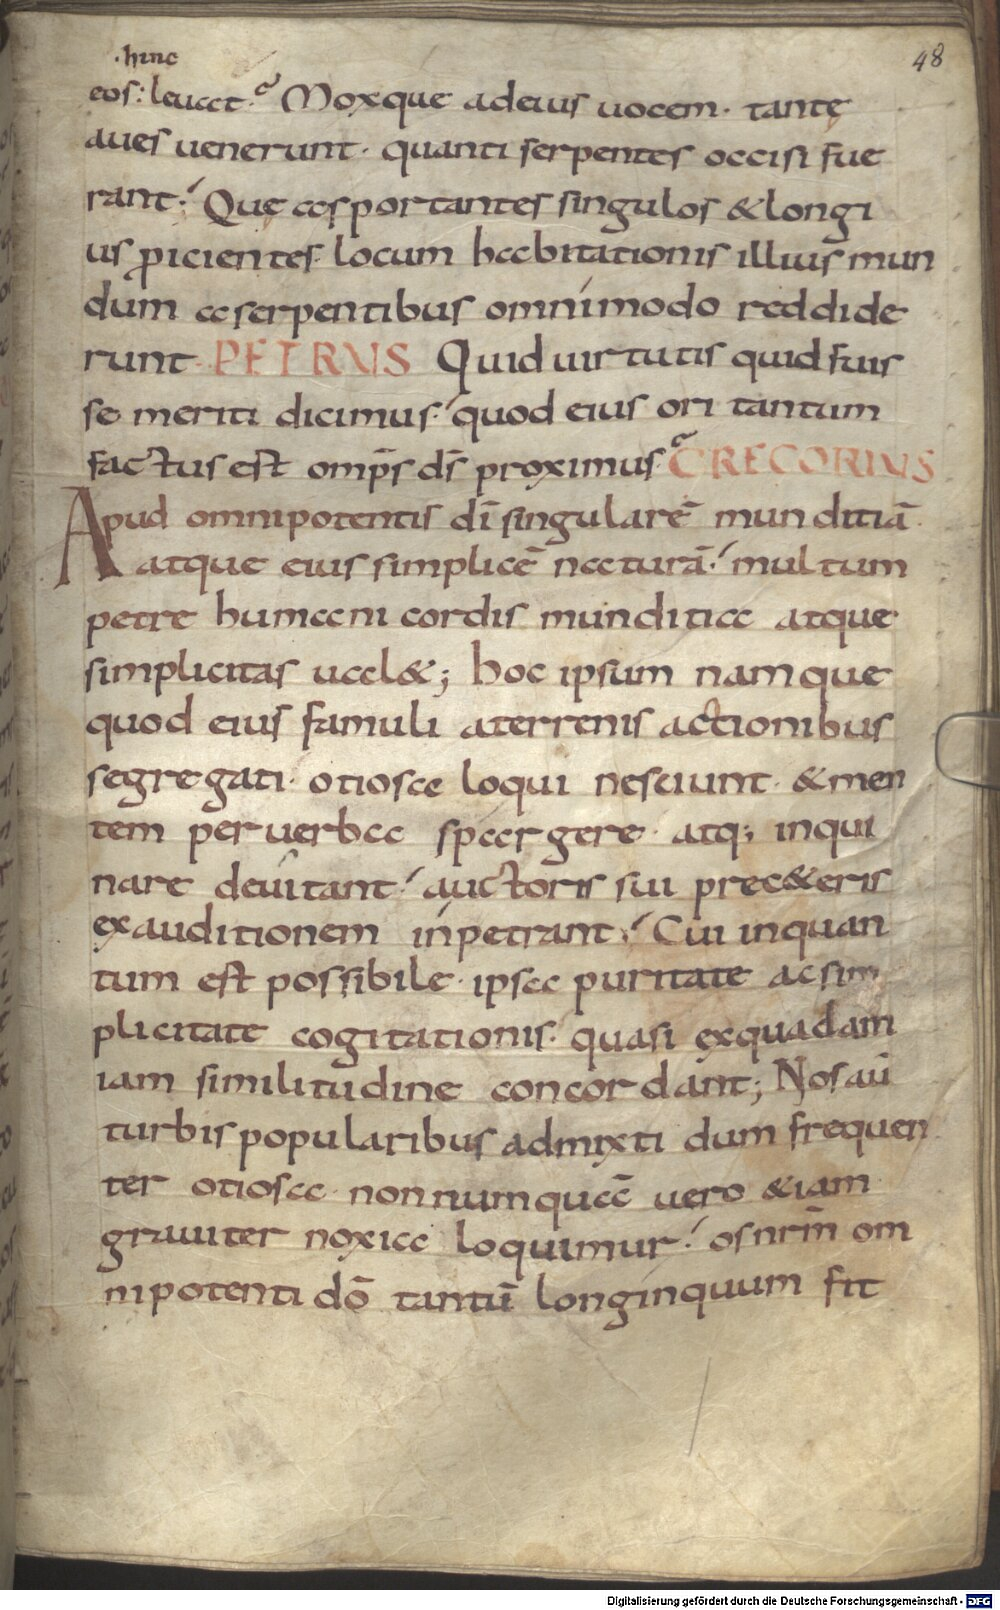 ·hinc
48
eos: leuat? Moxque adeius uocem · tantę
aues uenerunt · quanti serpentes occisi fue
rant; Quę asportantes singulos &longi
us p̄icientes · locum habitationis illius mun
dum aserpentibus omnímodo reddide
runt · PETRUS Quid uirtutis quid fuis
se meriti dicimus · quod eius ori tantum
factus est omp̄s d̄s proximus? GREGORIUS
Apud omnipotentis dī singularē munditiā
atque eius simplicē naturā · multum
petre humani cordis munditia atque
simplicitas ual&; hoc ipsum namque
quod eius famuli aterrenis actionibus
segregati · otiosa loqui nesciunt · &men
tem peruerba spargere · atq; inqui
nare deuitant · auctoris sui prec&eris
exauditionem inpetrant · Cui inquan
tum est possibile · ipsa puritate acsim
plicitate cogitationis · quasi exquadam
iam similitudine concordant; Nosaū
turbis popularibus admixti dum frequen
ter otiosa · nonnumquā uero &iam
grauiter noxia loquimur · os nr̄m om
nipotenti dō tantū longinquum fit
Digitalisierung gefördert durch die Deutsche Forschungsgemeinschaft - DFG